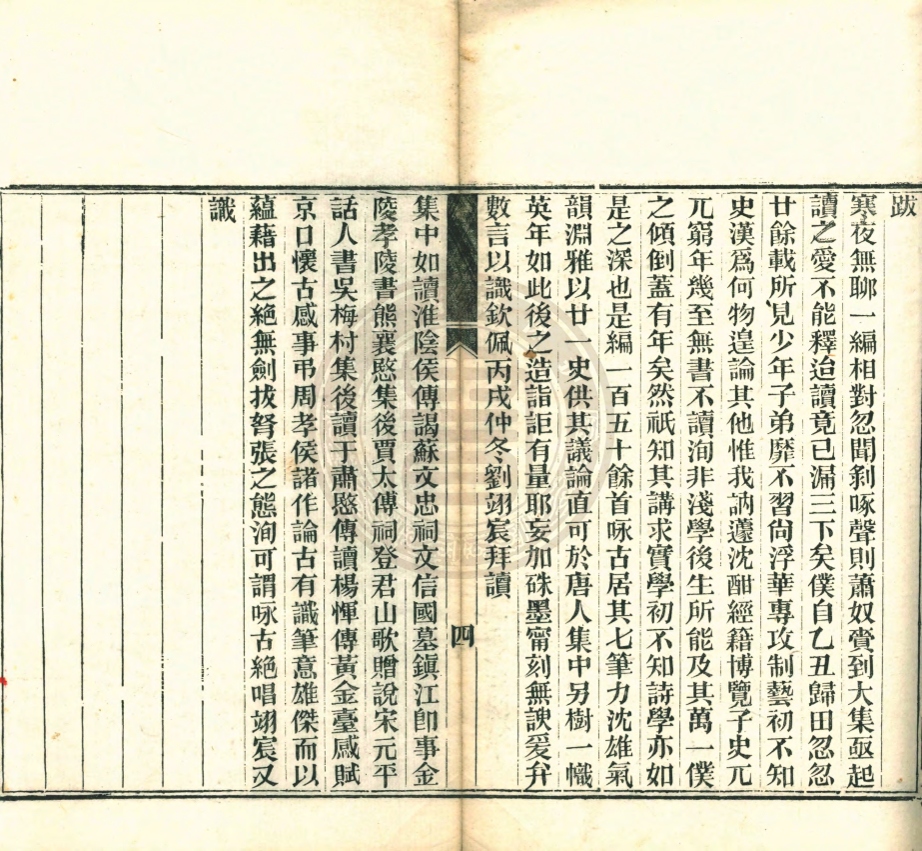 跋
寒夜無聊一編相對忽聞剝啄聲則蕭奴賫到大集亟起
讀之愛不能釋迨讀竟已漏三下矣僕自乙丑歸田忽忽
廿餘載所見少年子弟靡不習尙浮華專攻制藝初不知
史漢爲何物遑論其他惟我訥蘧沈酣經籍博覽子史兀
兀窮年幾至無書不讀洵非淺學後生所能及其萬一僕
之傾倒蓋有年矣然祇知其講求實學初不知詩學亦如
是之深也是編一百五十餘首咏古居其七筆力沈雄氣
韻淵雅以廿一史供其議論直可於唐人集中另樹一幟
英年如此後之造詣詎有量耶妄加硃墨甯刻無諛爰弁
數言以識欽佩丙戌仲冬劉翊宸拜讀
四
集中如讀淮陰侯傳謁蘇文忠祠文信國墓鎭江卽事金
陵孝陵書熊襄愍集後賈太傅祠登君山歌贈說宋元平
話人書吳梅村集後讀于肅愍傳讀楊惲傳黃金臺感賦
京口懷古感事弔周孝侯諸作論古有識筆意雄傑而以
蘊藉出之絕無劍拔弩張之態洵可謂咏古絕唱翊宸又
識